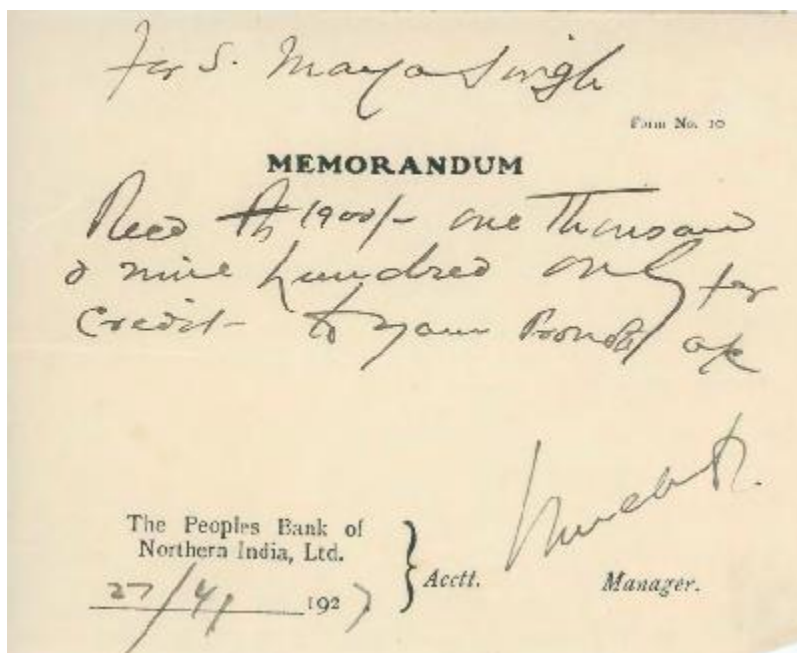 For S. Maya Singh
Form No. 10
MEMORANDUM
Recd Rs 1900/- one Thousand
& nine hundred only for
Credit to your Bonds a/c
The Peoples Bank of
Northern India, Ltd.
27/4/ 1927
Acctt.
Manager.